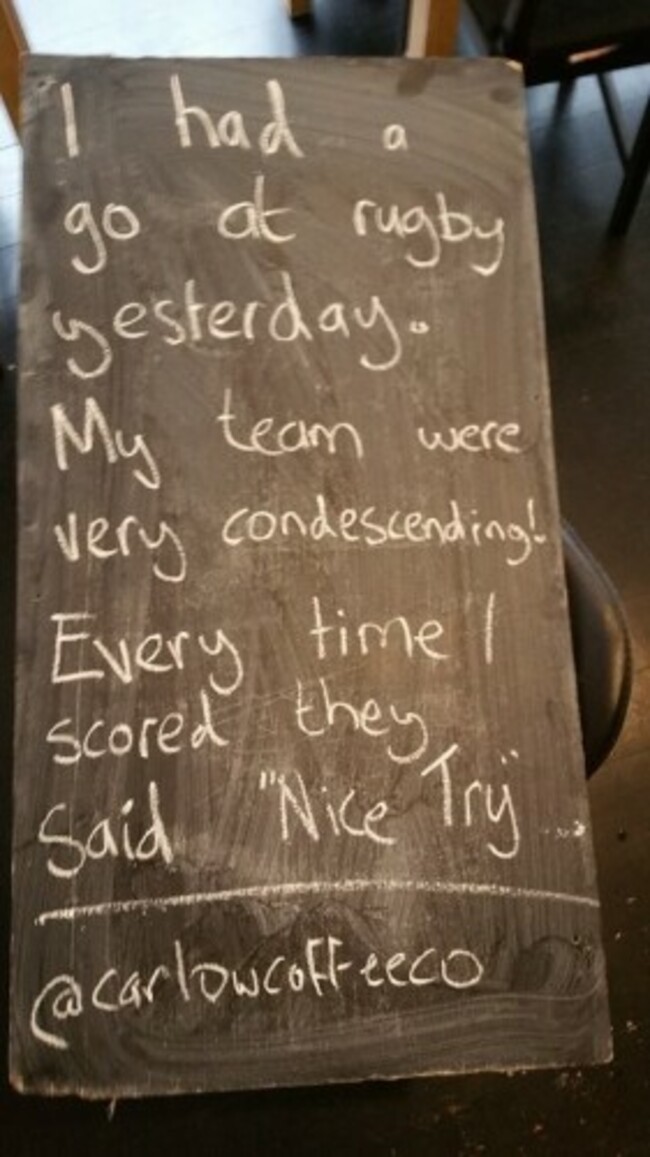 I had a
go at rugby
yesterday.
My team were
very condescending!
Every time I
scored they
Said "Nice Try"...
@carlowcoffeeco